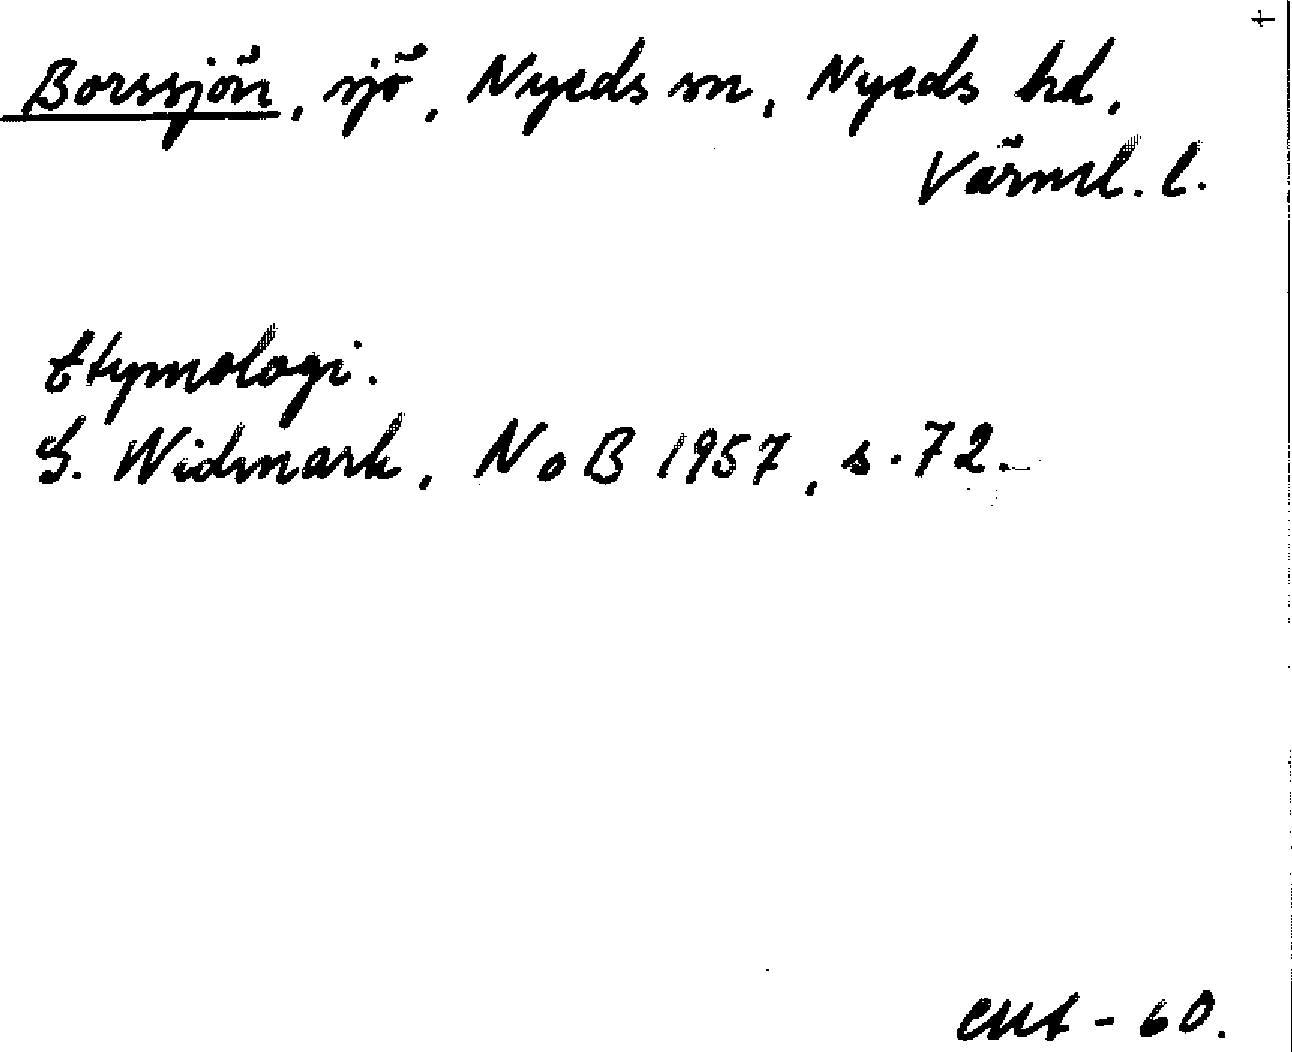 Borssjön, sjö, Nyeds sn, Nyeds hd,
Värml. l.
Etymologi.
G. Widmark, NoB 1957, s. 72.